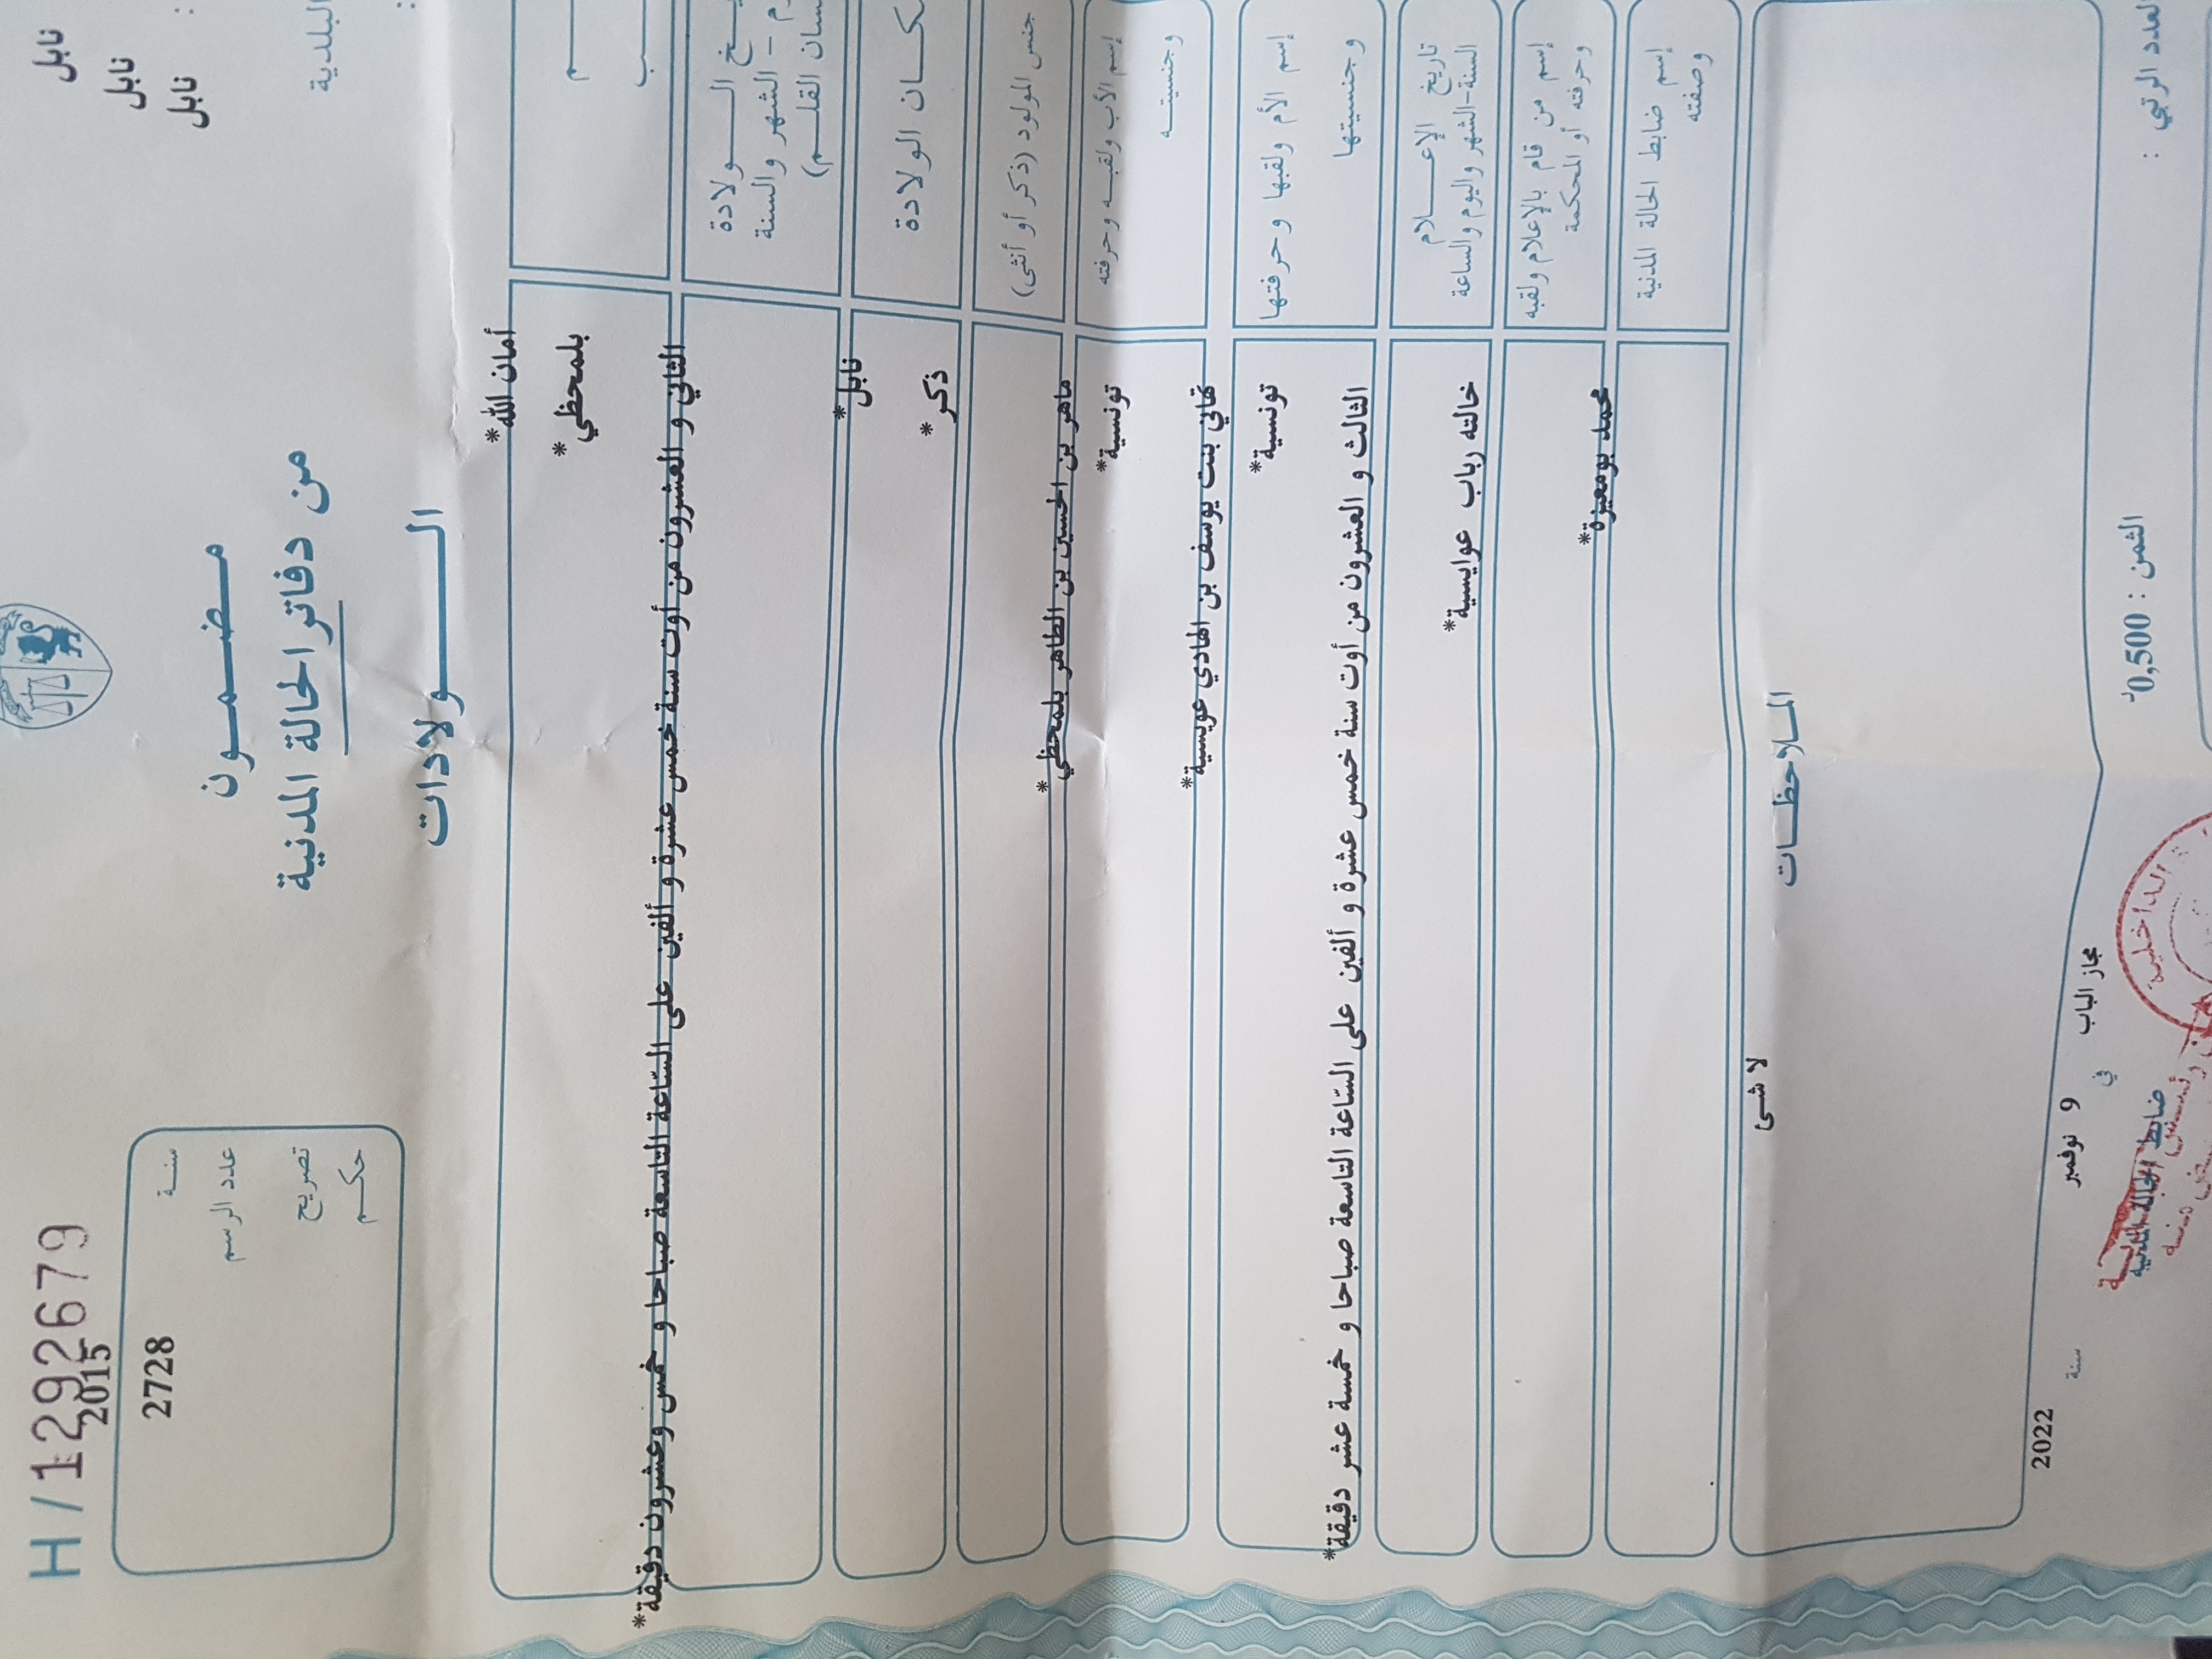 H/1292679
نابل
نابل
نابل
:
البلدية
:
2015
سنة
2728
عدد الرسم
تصريح
حكم
مضمون
من دفاتر الحالة المدنية
الولادات
أمان الله*
بلمحظي*
الولادة
الشهر والسنة
الثاني و العشرون من أوت سنة خمس عشرة و ألفين على السّاعة التاسعة صباحا و خمس وعشرون دقيقة*
مكان الولادة
نابل*
جنس المولود (ذكر أو أنثى)
ذكر*
إسم الأب ولقبه وحرفته
وجنسيته
ماهر بن الحسين بن الطاهر بلمحظي*
تونسية*
إسم الأم ولقبها وحرفتها
وجنسيتها
تهاني بنت يوسف بن الهادي عويسية*
تونسية*
تاريخ الإعلام
السنة-الشهر واليوم والساعة
الثالث و العشرون من أوت سنة خمس عشرة و ألفين على السّاعة التاسعة صباحا و خمسة عشر دقيقة*
إسم من قام بالإعلام ولقبه
وحرفته أو المحكمة
خالته رباب عوايسية*
إسم ضابط الحالة المدنية
وصفته
محمد بومعيزة*
الملاحظات
لا شئ
مجاز الباب في 9 نوفمبر سنة 2022
ضابط الحالة المدنية
الداخلية
الثمن : 0,500د
العدد الرتبي :